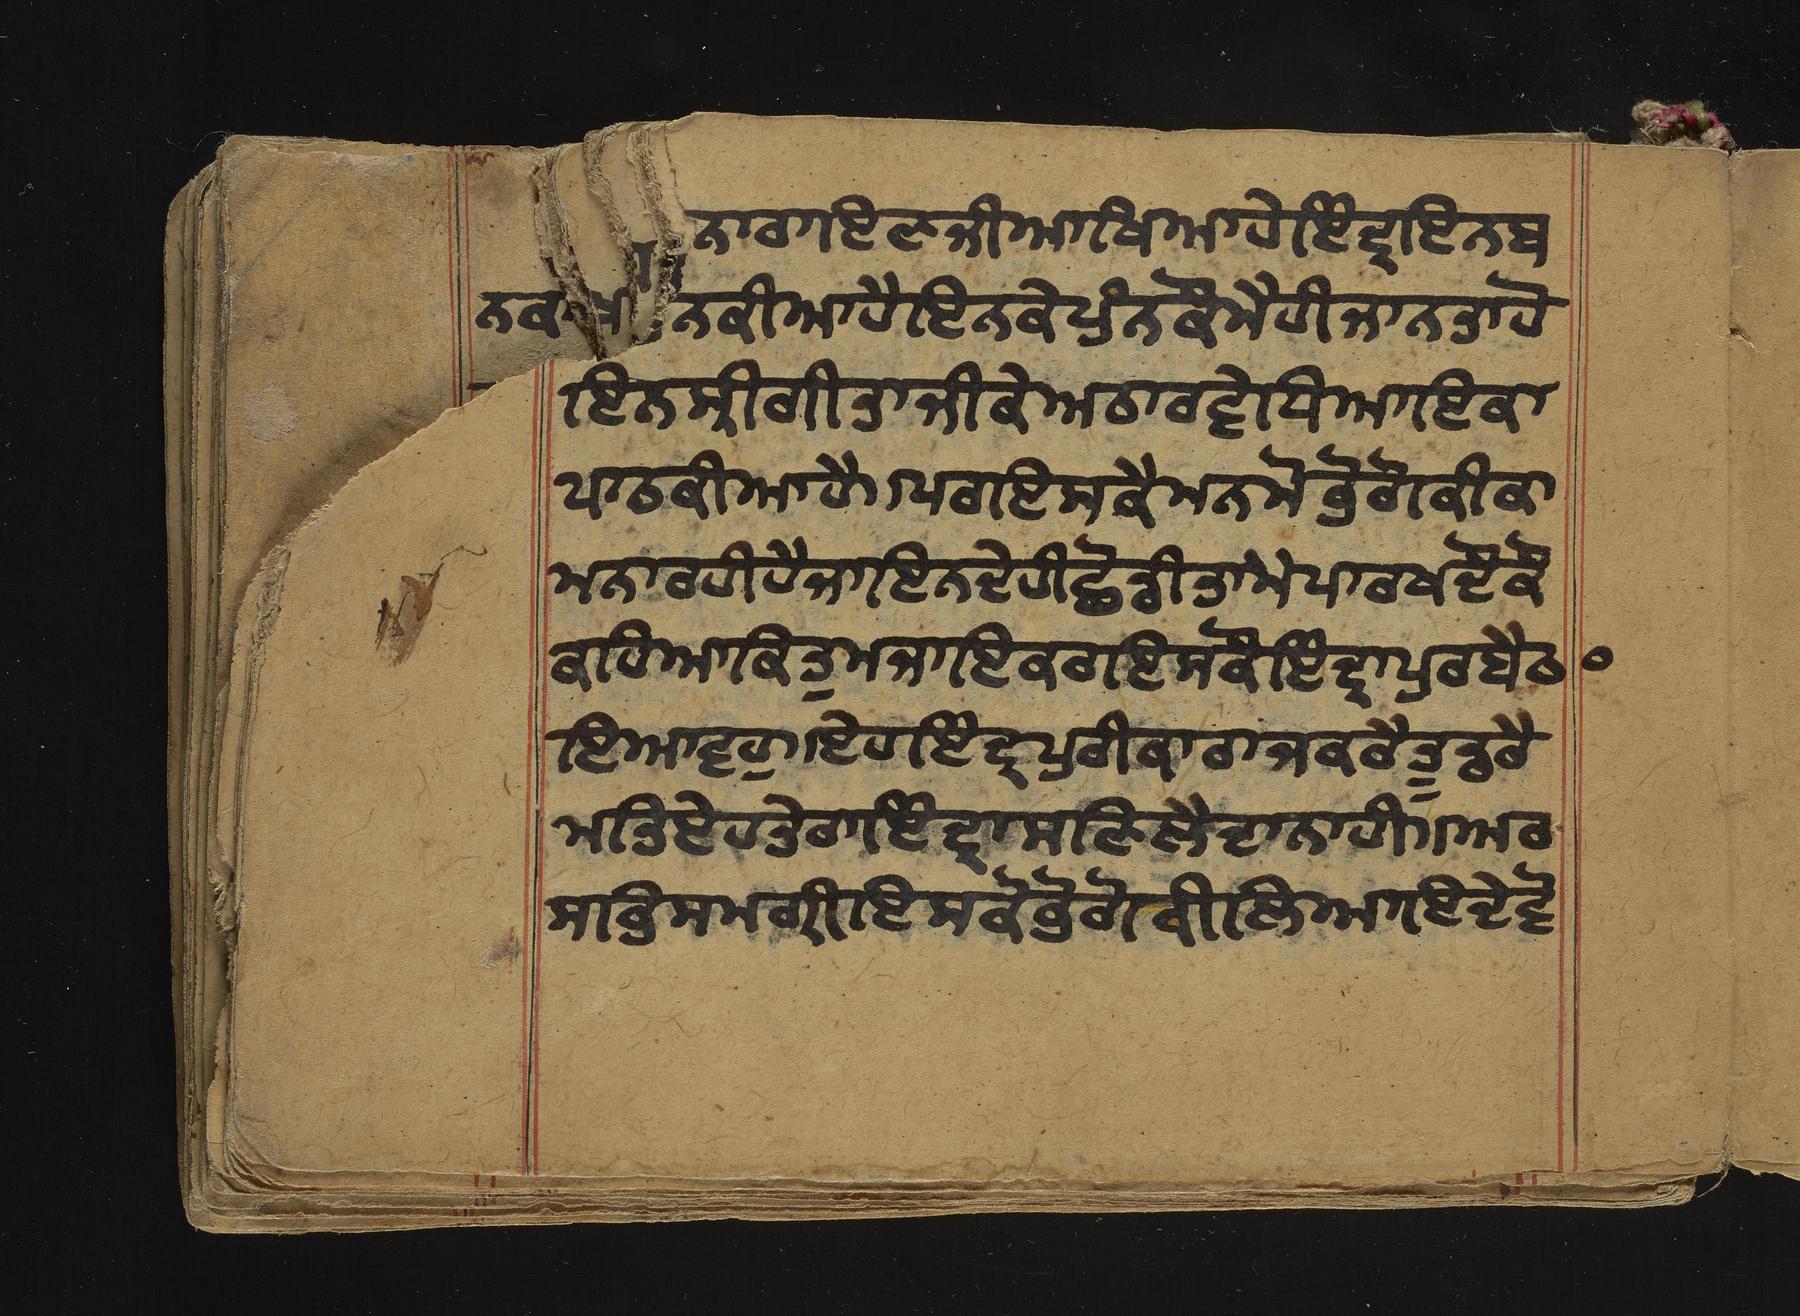 ਨਾਰਾਇਣਜੀਆਖਿਆਹੇਇੰਦ੍ਰਇਨਬ
ਨਕੀਆਹੈਇਨਕੇਪੁੰਨਕੌਮੈਹੀਜਾਨਤਾਹੋ
ਇਨਸ੍ਰੀਗੀਤਾਜੀਕੇਅਠਾਰਵ੍ਹੇਧਿਆਇਕਾ
ਪਾਠਕੀਆਹੈ।ਪਰਇਸਕੈਮਨਮੋਭੋਗੋਕੀਕਾ
ਮਨਾਰਹੀਹੈਜਾਇਨਦੇਹੀਛੋਡੀਤਾਮੇਪਾਰਖਦੋਕੌ
ਕਹਿਆਕਿਤੁਮਜਾਇਕਰਇਸਕੌਇੰਦ੍ਰਾਪੁਰਬੈਠ
ਇਆਵਹੁ।ਏਹਇੰਦ੍ਰਪੁਰੀਕਾਰਾਜਕਰੈਤੁਡਰੈ
ਮਤਿਏਹਤੇਰਾਇੰਦ੍ਰਾਸਣਿਲੈਦਾਨਾਹੀ॥ਅਰ
ਸਭਿਸਮਗ੍ਰੀਇਸਕੋਭੋਗੋਕੀਲਿਆਇਦੇਵੋ